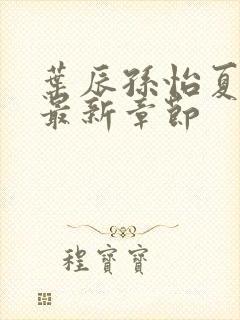 葉辰孫怡夏
最新章節
程寶寶